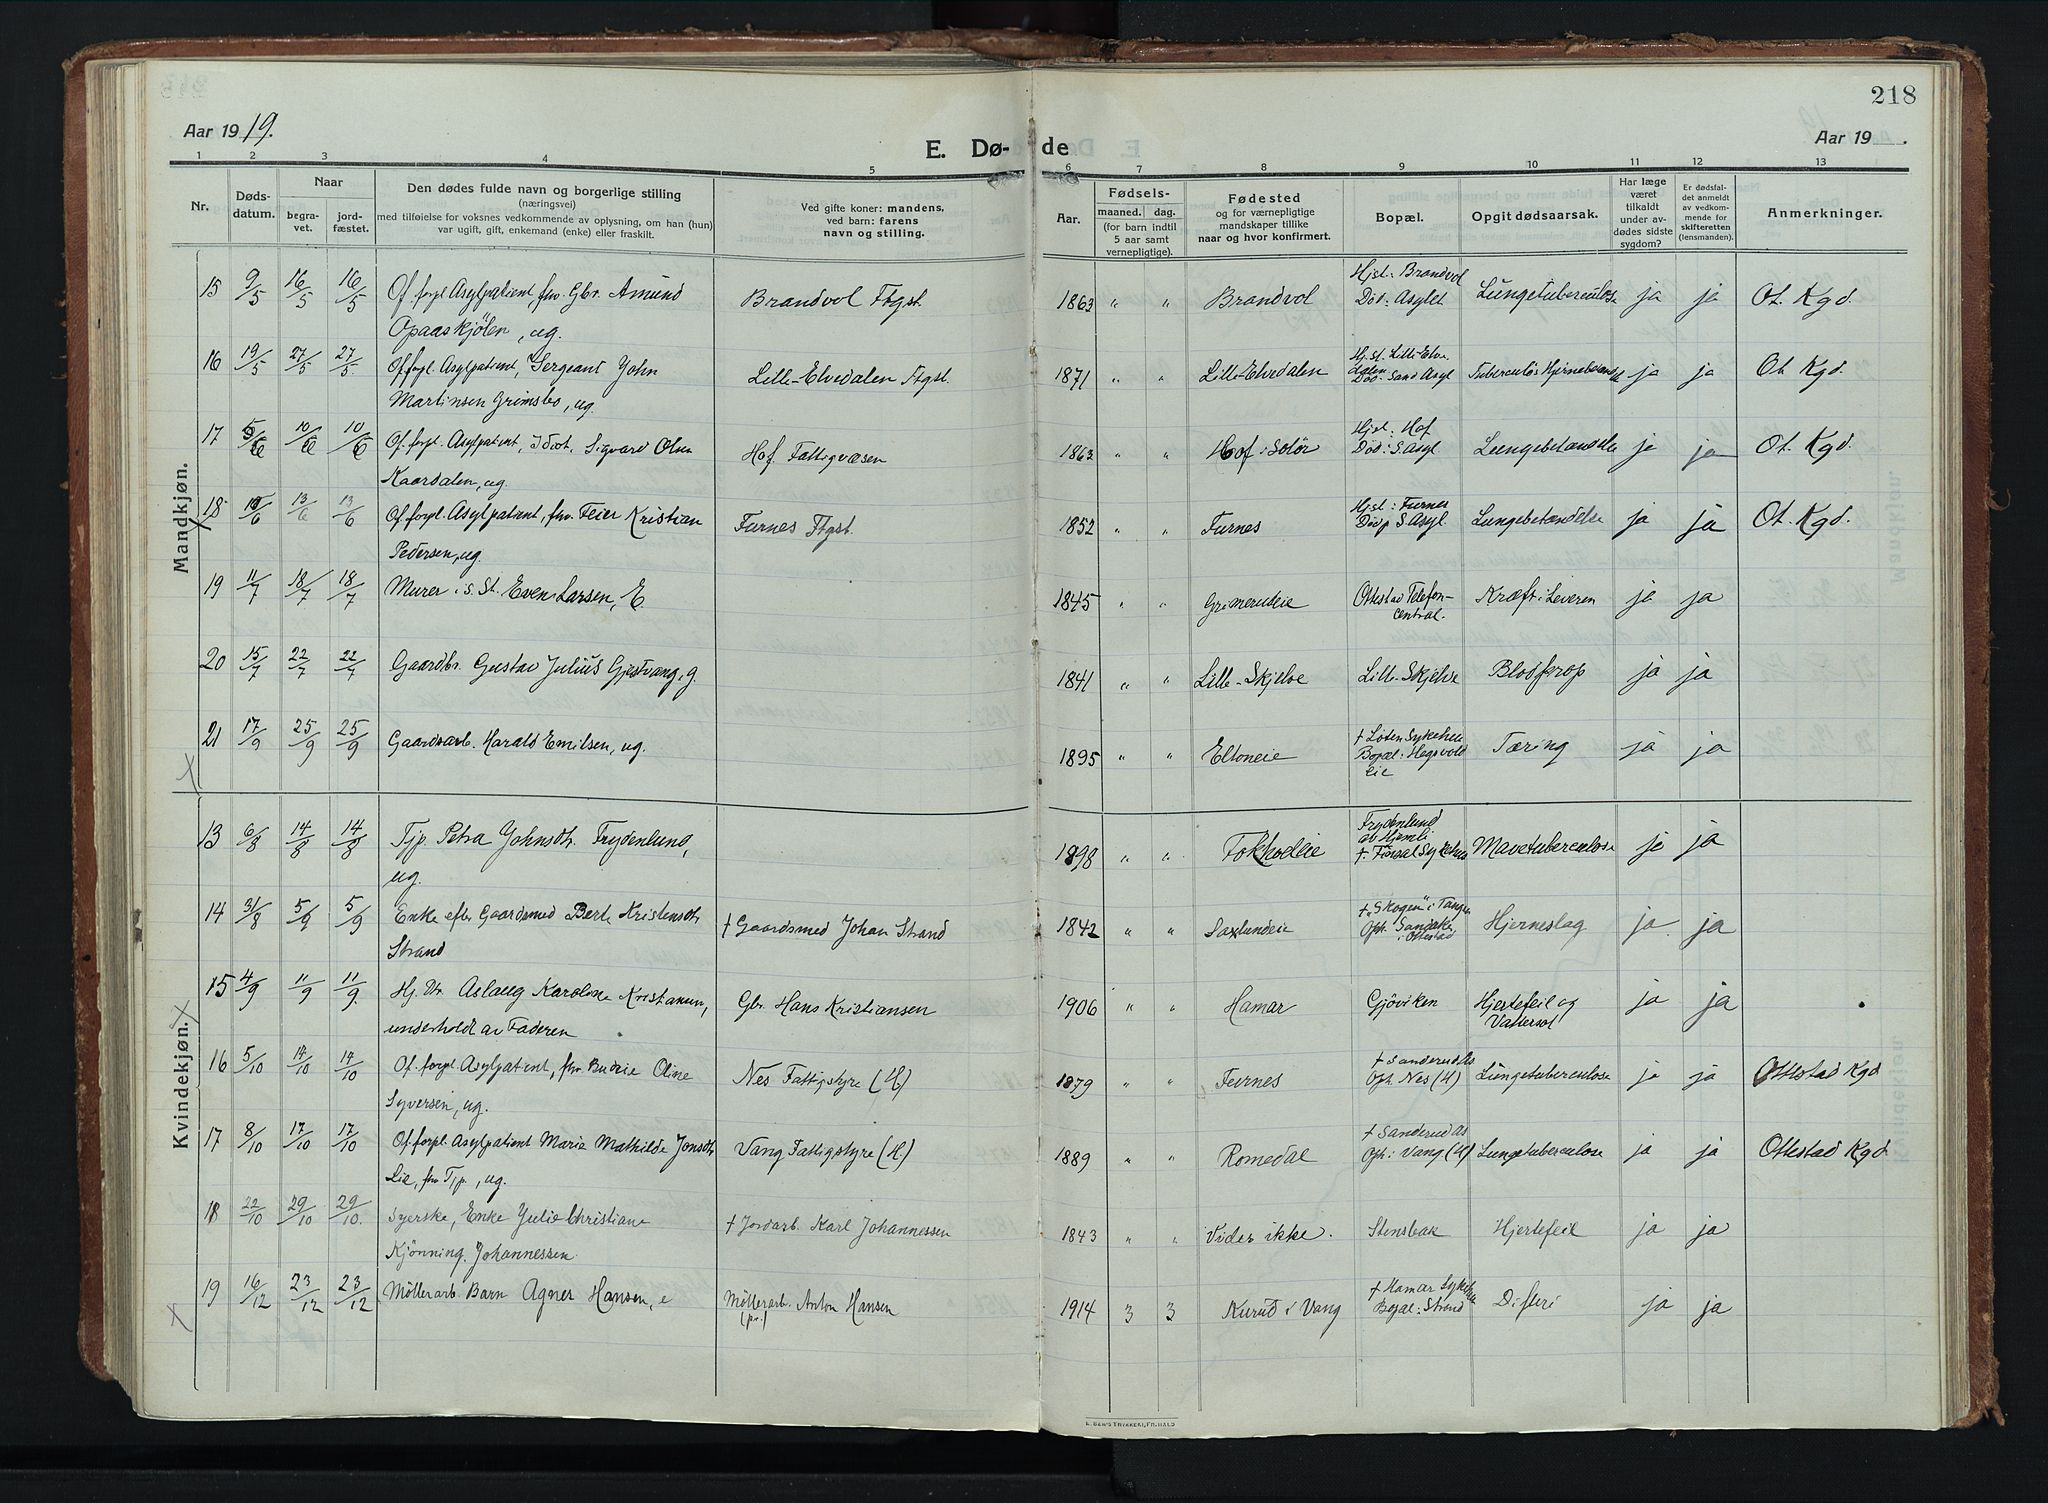 218
Aar 1919.
E. Dø- de
Aar 19 .
1 2 3 4 5 6 7 8 9 10 11 12 13
Nr.
Døds-
datum.
Naar
begra-
vet.
jord-
fæstet.
Den dødes fulde navn og borgerlige stilling
(næringsvei)
med tilføielse for voksnes vedkommende av oplysning, om han (hun)
var ugift, gift, enkemand (enke) eller fraskilt.
Ved gifte koner: mandens,
ved barn: farens
navn og stilling.
Aar.
Fødsels-
maaned. dag.
(for barn indtil
5 aar samt
vernepligtige).
Fødested
og for værnepligtige
mandskaper tillike
naar og hvor konfirmert.
Bopæl.
Opgit dødsaarsak.
Har læge
været
tilkaldt
under av-
dødes sidste
sygdom?
Er dødsfal-
det anmeldt
av vedkom-
mende for
skifteretten
(lensmanden).
Anmerkninger.
Mandkjøn.
15 9/5 16/5 16/5 Of. forpl. Asylpatient, fhv. Gbr. Amund Brandvol Ftgst. 1863 " " Brandvol Hjst: Brandvol
Død: Asylet Lungetuberculose ja ja Ot. Kgd.
Opaaskjølen, ug.
16 19/5 27/5 27/5 Of. forpl. Asylpatient, Sergeant John Lille-Elvedalen Ftgst. 1871 " " Lille-Elvedalen Hjst. Lille Elve-
dalen
Død: Sand. Asyl Tuberculøs Hjernebetændelse ja ja Ot. Kgd.
Martinsen Grimsbo, ug.
17 5/6 10/6 10/6 Of. forpl. Asylpatient, Idiot. Sigvard Olsen Hof Fattigvæsen 1863 " " Hof i Solør Hjst: Hof
Død: S. Asyl Lungebetændelse ja ja Ot. Kgd.
Kaardalen, ug.
18 10/6 13/6 13/6 Of. forpl. Asylpatient, fhv. Feier Kristian Furnes Ftgst. 1852 " " Furnes Hjst: Furnes
S. Asyl. Lungebetændelse ja ja Ot. Kgd.
Pedersen, ug.
19 11/7 18/7 18/7 Murer i s. St. Even Larsen, E. 1845 " " Grimerudeie Ottestad Telefon-
central. Kræft i Leveren ja ja
20 15/7 22/7 22/7 Gaardbr. Gustav Julius Gjestvang, g. 1841 " " Lille-Skjelve Lille-Skjelve Blodprop ja ja
21 17/9 25/9 25/9 Gaardsarb. Harald Emilsen, ug. 1895 " " Eltoneie † Løten Sykehus
Bopæl: Hegsvold
eie Tæring ja ja
Kvindekjøn.
13 6/8 14/8 14/8 Tjp. Petra Johnsdtr. Frydenlund, 1898 " " Frydenlund
† Sykehus Mavetuberculose ja ja
ug.
14 31/8 5/9 5/9 Enke efter Gaardsmed Berte Kristensdtr. † Gaardsmed Johan Strand 1842 " " Saxlundeie † "Skogen" i Tangen
i Ottestad Hjerneslag ja ja
Strand
15 4/9 11/9 11/9 Hj. Dtr. Aslaug Karoline Kristiansen, Gbr. Hans Kristiansen 1906 " " Hamar Gjøviken Hjertefeil og
Vattersot ja ja
underholdt av Faderen
16 5/10 14/10 14/10 Of. forpl. Asylpatient, fhv. Budeie Oline Nes Fattigstyre (H.) 1879 " " Furnes † Sanderud As.
Oph. Nes (H) Lungetuberculose ja ja Ottestad Kgd
Syversen, ug.
17 8/10 17/10 17/10 Of. forpl. Asylpatient Marie Mathilde Jonsdtr. Vang Fattigstyre (H.) 1889 " " Romedal † Sanderud As.
Oph: Vang (H) Lungetuberculose ja ja Ottestad Kgd.
Lie, fhv. Tjp., ug.
18 22/10 29/10 29/10. Syerske, Enke Julie Christiane † Jordarb. Karl Johannessen 1843 " " Vides ikke. Stensbak Hjertefeil ja ja
Kjønning Johannessen.
19 16/12 23/12 23/12 Møllerarb. Barn Agnes Hansen, e Møllerarb. Anton Hansen
(pr.) 1914 3 3 Kurud i Vang † Hamar Sykehus
Bopæl: Strand Difteri ja ja
E. SEM'S TRYKKERI, FR.HALD